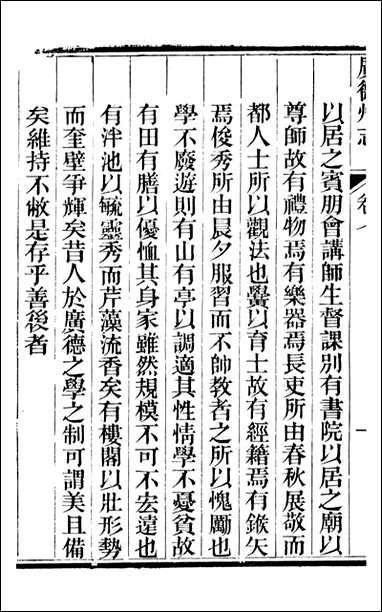 廣德州志 卷八 一
以居之賓朋會講師生督課別有書院以居之廟以
尊師故有禮物焉有樂器焉長吏所由春秋展敬而
都人士所以觀法也黌以育士故有經籍焉有鍭矢
焉俊秀所由晨夕服習而不帥教者之所以愧勵也
學不廢遊則有山有亭以調適其性情學不憂貧故
有田有膳以優恤其身家雖然規模不可不宏遠也
有泮池以毓靈秀而芹藻流香矣有樓閣以壯形勢
而奎壁爭輝矣昔人於廣德之學之制可謂美且備
矣維持不敝是存乎善後者